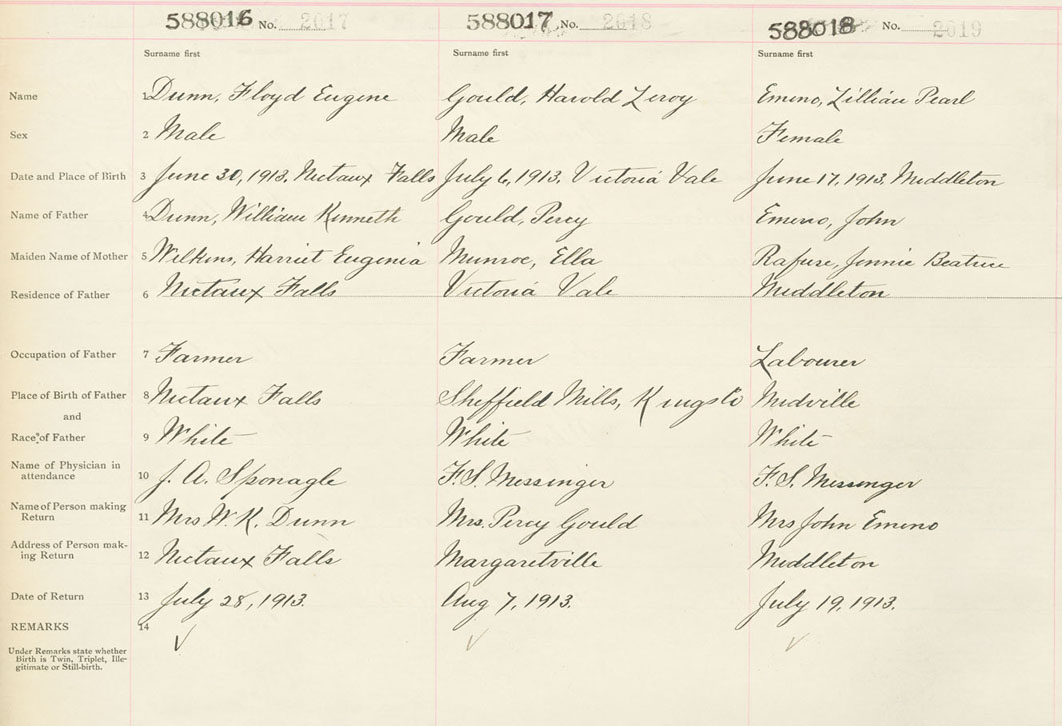 588016 No. 2017 588017 No. 2618 588018 No. 2019
Surname first Surname first Surname first
Name 1 Dunn, Floyd Eugene Gould, Harold Leroy Emeno, Lillian Pearl
Sex 2 Male Male Female
Date and Place of Birth 3 June 30, 1913. Nictaux Falls July 6, 1913. Victoria Vale June 17, 1913. Middleton
Name of Father 4 Dunn, William Kenneth Gould, Percy Emeno, John
Maiden Name of Mother 5 Wilkins, Harriet Eugenia Munroe, Ella Rafuse, Jennie Beatrice
Residence of Father 6 Nictaux Falls Victoria Vale Middleton
Occupation of Father 7 Farmer Farmer Labourer
Place of Birth of Father 8 Nictaux Falls Sheffield Mills, Kings Co Midville
and
Race of Father 9 White White White
Name of Physician in
attendance 10 J. A. Sponagle F. S. Messinger F. S. Messinger
Name of Person making
Return 11 Mrs W. K. Dunn Mrs. Percy Gould Mrs John Emeno
Address of Person mak-
ing Return 12 Nictaux Falls Margaretville Middleton
Date of Return 13 July 28, 1913. Aug 7, 1913. July 19, 1913.
REMARKS 14
Under Remarks state whether
Birth is Twin, Triplet, Ille-
gitimate or Still-birth.